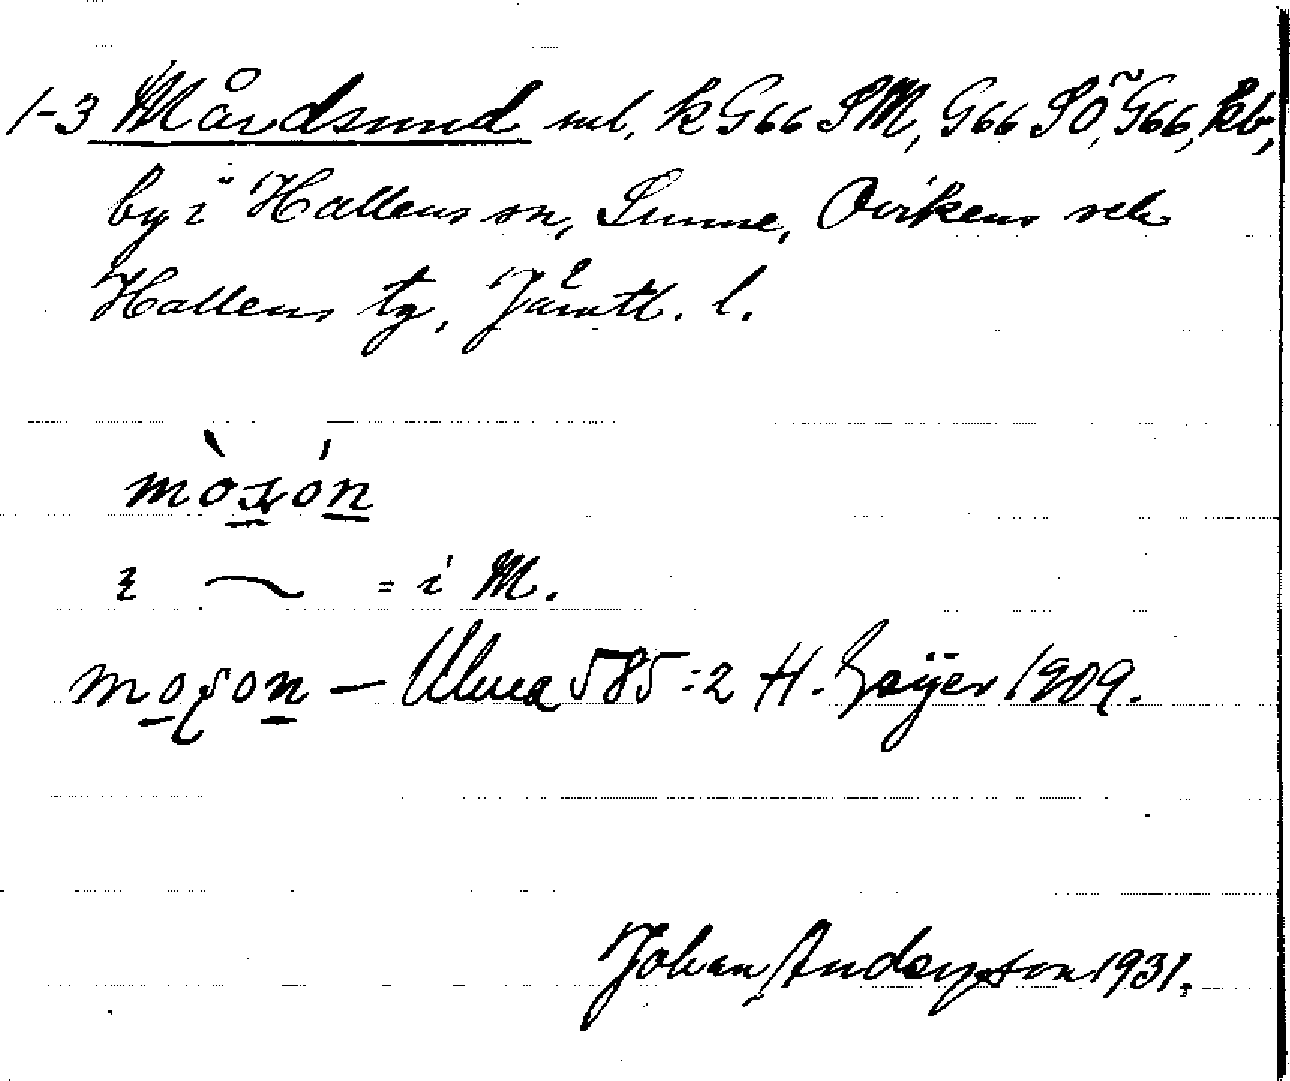 1-3 Mårdsund sbl, k G66 SM, G66 SÖ, G66, kb,
by i Hallens sn, Sunne, Ovikens och
Hallens tg, Jämtl. l.
i ~ = i M.
— Ulma 585:2 H. Geijer 1909.
Johan Anderson 1931.